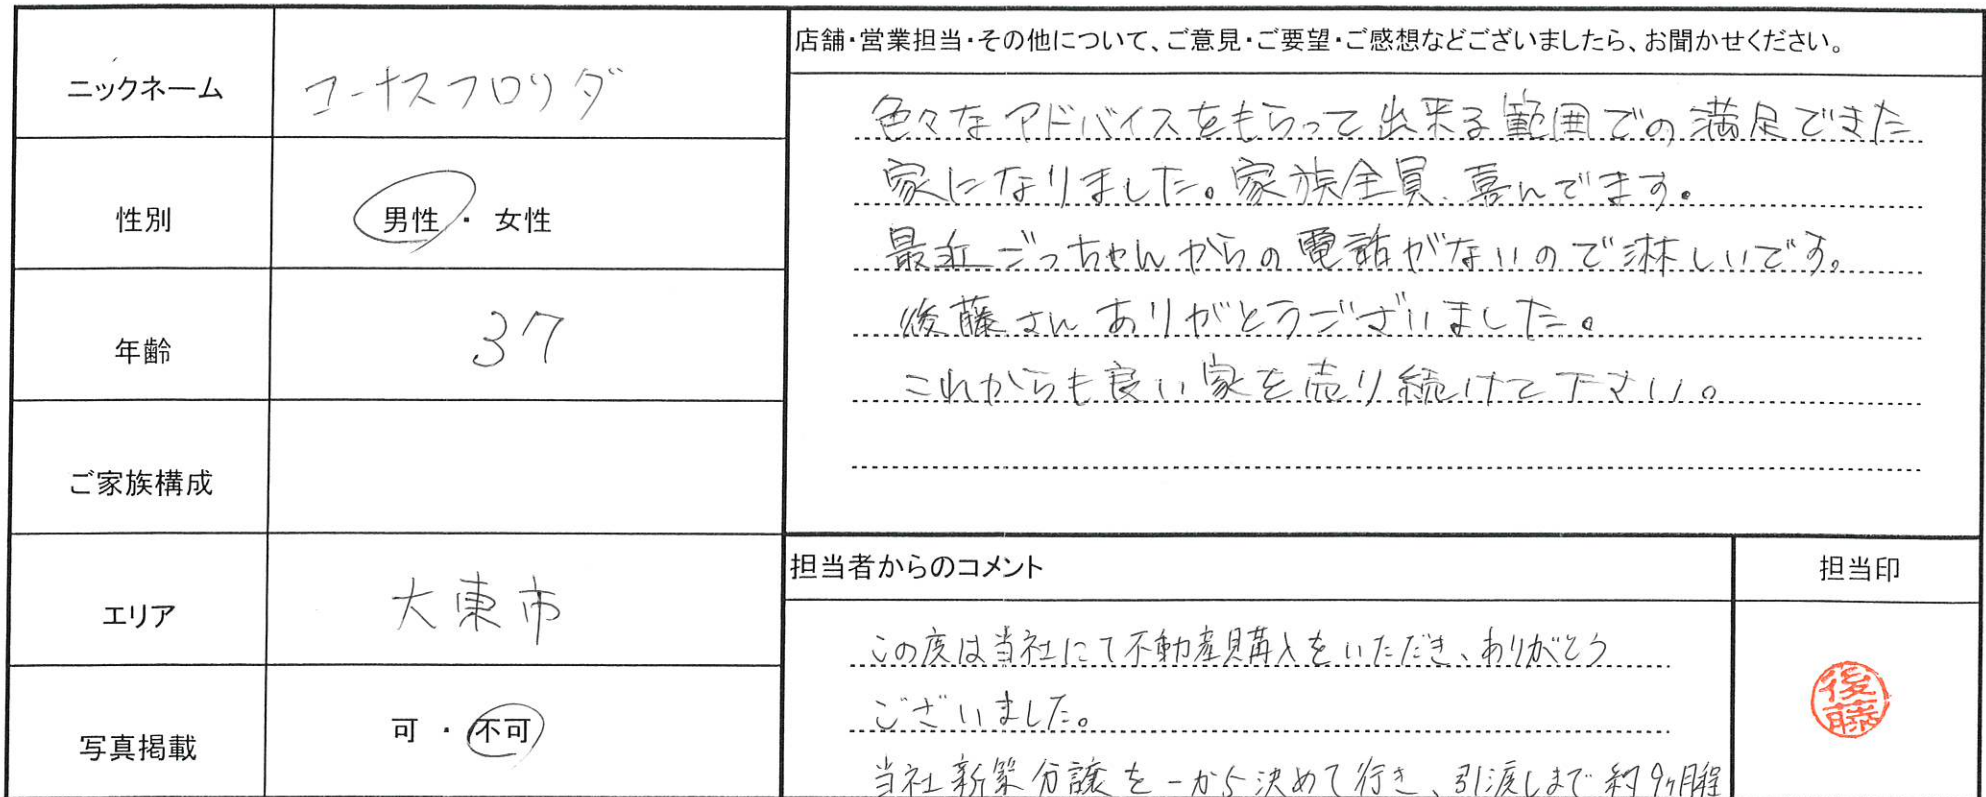 ニックネーム
コーナスフロリダ
性別
男性・女性
年齢
37
ご家族構成
エリア
大東市
写真掲載
可・不可
店舗・営業担当・その他について、ご意見・ご要望・ご感想などございましたら、お聞かせください。
色々なアドバイスをもらって出来る範囲での満足できた
家になりました。家族全員、喜んでます。
最近ごっちゃんからの電話がないので淋しいです。
後藤さんありがとうございました。
これからも良い家を売り続けて下さい。
担当者からのコメント
この度は当社にて不動産購入をいただき、ありがとう
ございました。
当社新築分譲を一から決めて行き、引渡しまで約9ヶ月程
担当印
後藤